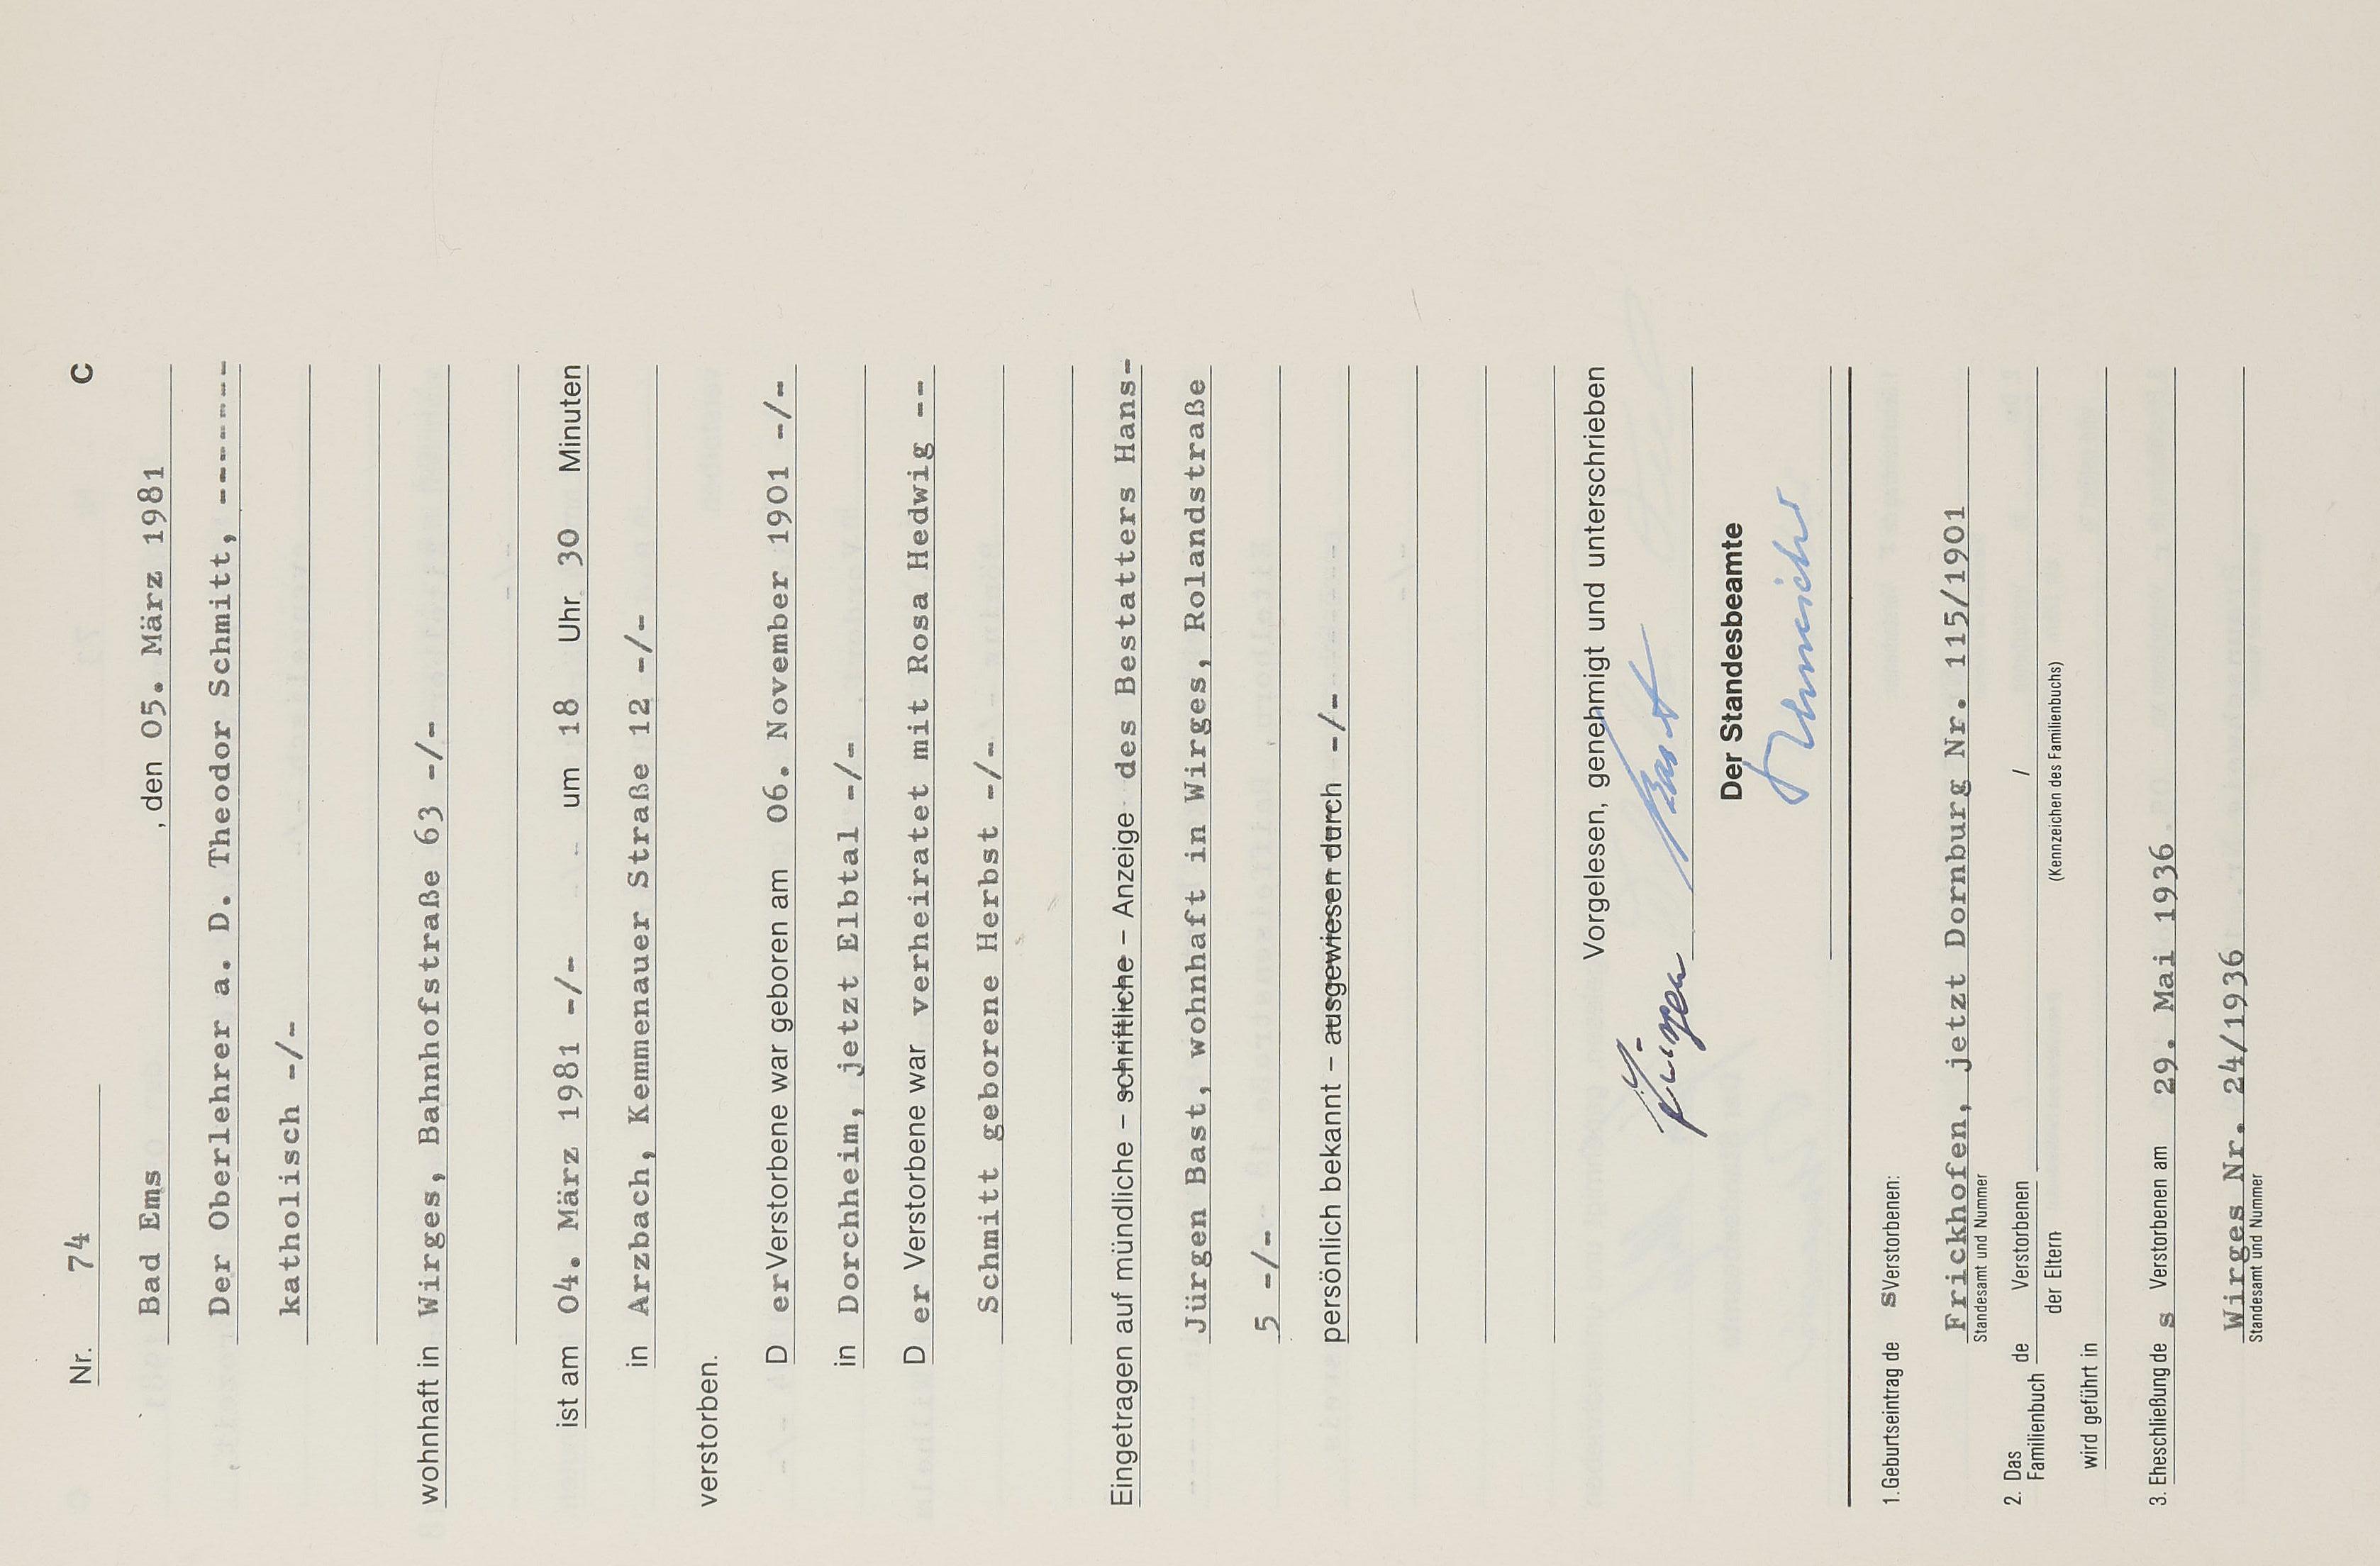 Nr. 74 C
Bad Ems , den 05. März 1981
Der Oberlehrer a. D. Theodor Schmitt, -------
katholisch -/-
wohnhaft in Wirges, Bahnhofstraße 63 -/-
ist am 04. März 1981 -/- um 18 Uhr 30 Minuten
in Arzbach, Kemmenauer Straße 12 -/-
verstorben.
D er Verstorbene war geboren am 06. November 1901 -/-
in Dorchheim, jetzt Elbtal -/-
D er Verstorbene war verheiratet mit Rosa Hedwig --
Schmitt geborene Herbst -/-
Eingetragen auf mündliche – schriftliche – Anzeige des Bestatters Hans-
Jürgen Bast, wohnhaft in Wirges, Rolandstraße
5 -/-
persönlich bekannt – ausgewiesen durch -/-
Vorgelesen, genehmigt und unterschrieben
Jürgen Bast
Der Standesbeamte
1. Geburtseintrag de s Verstorbenen:
Frickhofen, jetzt Dornburg Nr. 115/1901
Standesamt und Nummer
2. Das Familienbuch de Verstorbenen /
der Eltern (Kennzeichen des Familienbuchs)
wird geführt in
3. Eheschließung de s Verstorbenen am 29. Mai 1936
Wirges Nr. 24/1936
Standesamt und Nummer